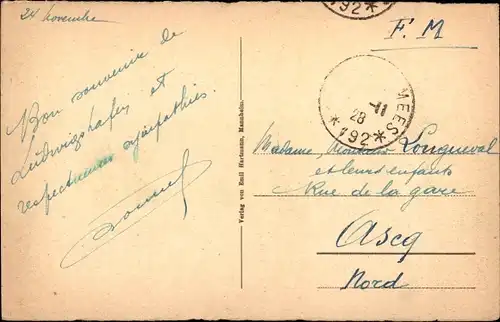 24 novembre
Bon souvenir de
Ludwigshafen et
respectueuses sympathies.
Verlag von Emil Hartmann, Mannheim.
*192*
F. M
MEES
28 -11
*192*
Madame, Monsieur Longueval
et leurs enfants
Rue de la gare
Ascq
Nord